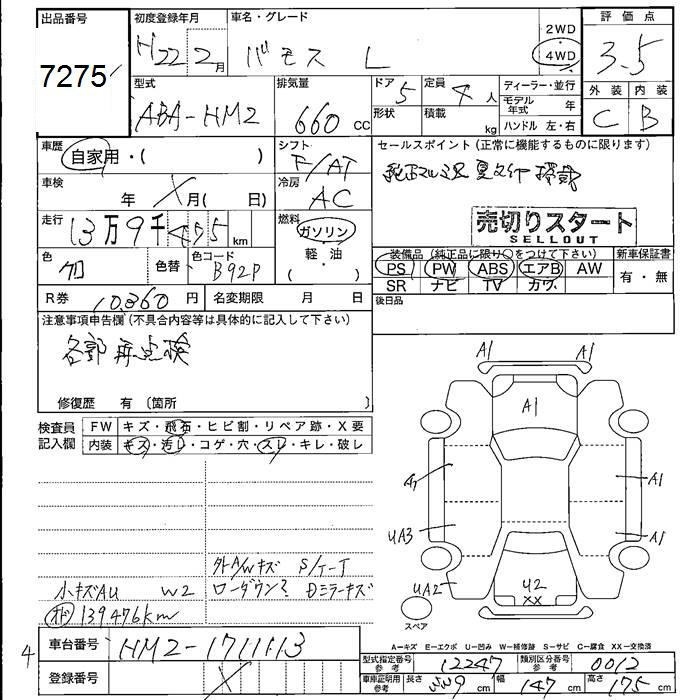 出品番号 初度登録年月 車名・グレード 2WD 評価点
7275 H22 2月 バモス L 4WD 3.5
型式 排気量 ドア 5 定員 4人 ディーラー・並行 外装 内装
ABA-HM2 660cc 形状 積載 kg モデル年式 年 C B
ハンドル 左・右
車歴 シフト セールスポイント(正常に機能するものに限ります)
自家用・( ) F/AT
車検 年 X月( 日) 冷房 AC
走行 13万9千475km 燃料 ガソリン 売切りスタート
軽・油 SELLOUT
( )
色 色替 色コード 装備品(純正品に限り○をつけて下さい) 新車保証書
クロ B92P PS PW ABS エアB AW 有・無
SR ナビ TV カワ
R券 10,860円 名変期限 月 日 後日品
注意事項申告欄(不具合内容等は具体的に記入して下さい)
各部再点検
修復歴 有(箇所 )
検査員記入欄 FW キズ・飛石・ヒビ割・リペア跡・X要
内装 キズ・汚レ・コゲ・穴・スレ・キレ・破レ
A1 A1
A1
A1 A1
UA3 A1
UA2 U2
XX
スペア
外A/Wキズ S/T-T
小キズAU W2 ローダウン? Dミラーキズ
139476km
A—キズ E—エクボ U—凹み W—補修跡 S—サビ C—腐食 XX—交換済
4 車台番号 HM2-1711113
登録番号 X
型式指定番号 参考 12247 類別区分番号 参考 0012
車庫証明用参考 長さ cm 幅 147cm 高さ 175cm